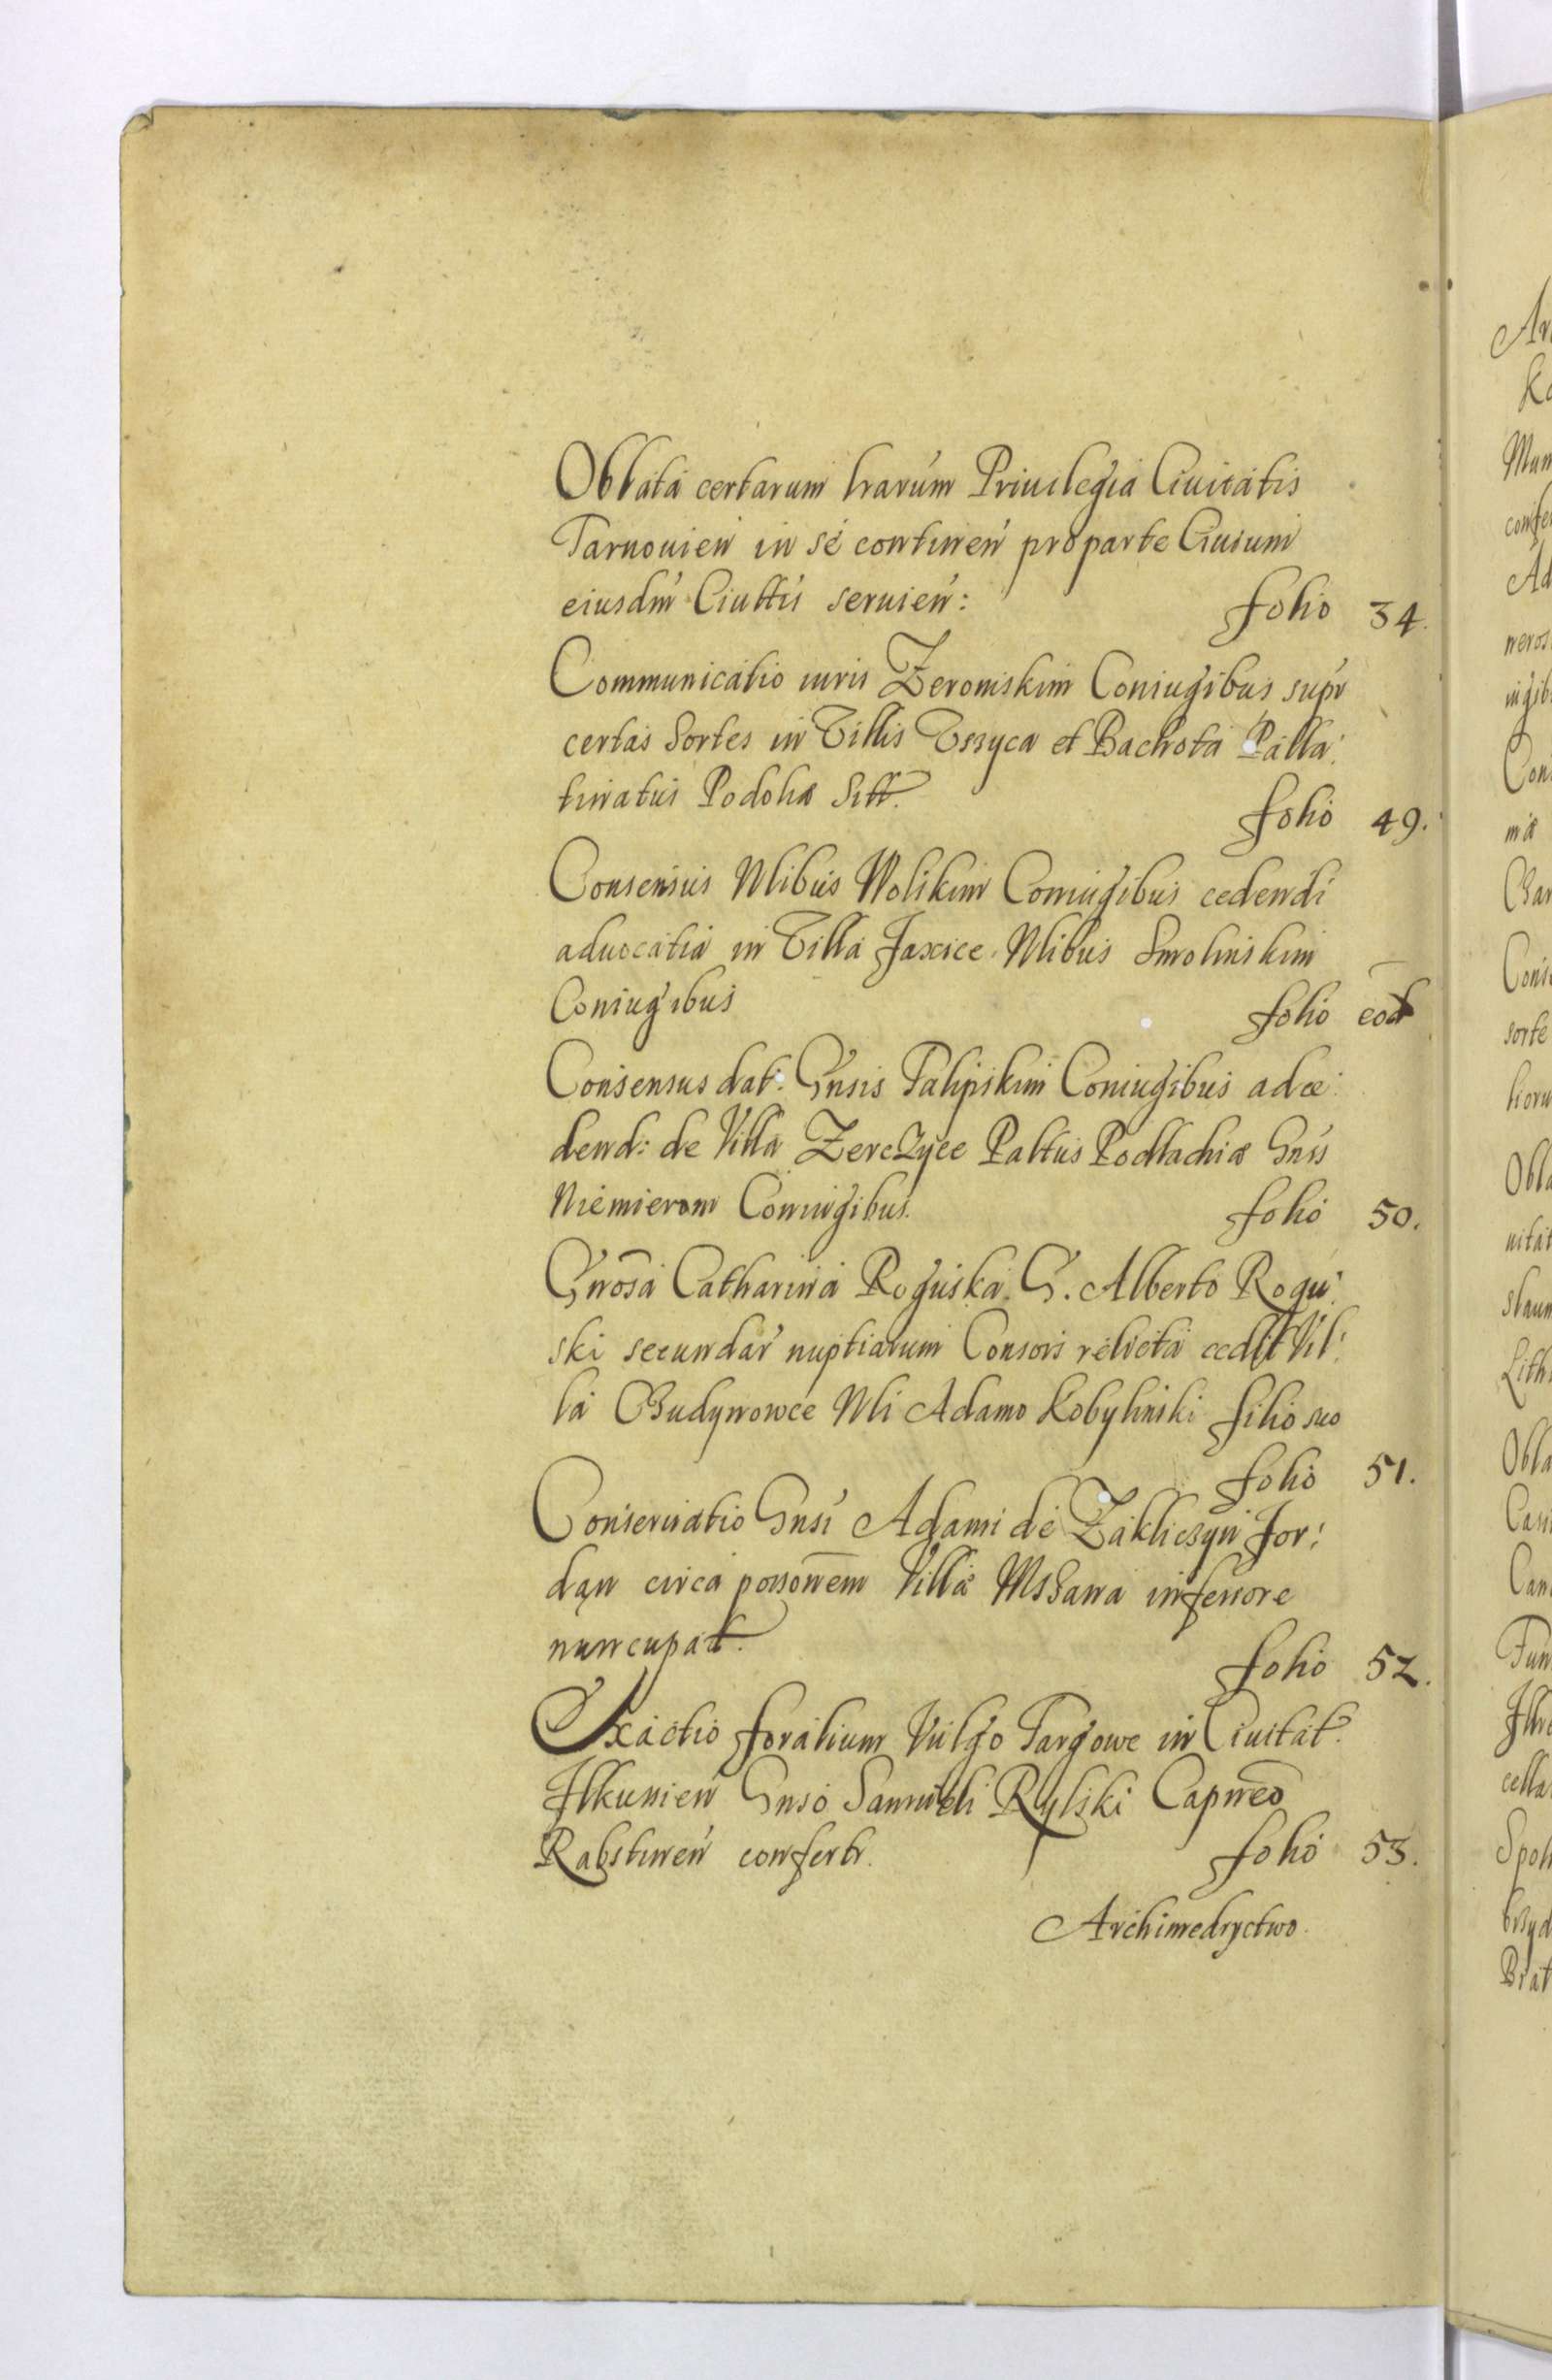 Oblata certarum lrarum Priuilegia Ciuitatis
Tarnouien in se continen pro parte Ciuium
eiusdm Ciuttis seruien: folio 34.
Communicatio iuris Zeromskim Coniugibus supr
certas Sortes in Villis Uszyca et Bachota Palla:
tinatus Podoliæ Sitt. folio 49.
Consensus Nlibus Wolskim Coniugibus cedendi
aduocatia in Villa Jaxice Nlibus Smolinskim
Coniugibus folio eod
Consensus dat: Gnsis Falipskim Coniugibus ad ce:
dend: de Villa Zerczyce Paltus Podlachiæ Gnss
Niemierom Coniugibus. folio 50.
Gnosa Catharina Roguska G. Alberto Rogu:
ski secundar nuptiarum Consors relicta cedit Vil:
la Budynowce Nli Adamo Kobylinski filio suo
folio 51.
Conseruatio Gnsi Adami de Zakliczyn Jor:
dan circa possonem Villæ Mszana inferiore
nuncupat. folio 52.
Exactio foralium Vulgo Targowe in Ciuitat
Ilkusien Gnso Samueli Rylski Capneo
Rabstinen confertr. folio 53.
Archimedryctwo.
Ar
Ka
Man
confe
Ad
neros
iugib
Con
miæ
Bar
Cons
sorte
lioru
Obla
uitat
slaum
Lith
Obla
Casi
Cam
Fun
Illu
cella
Spol
brzyd
Brat